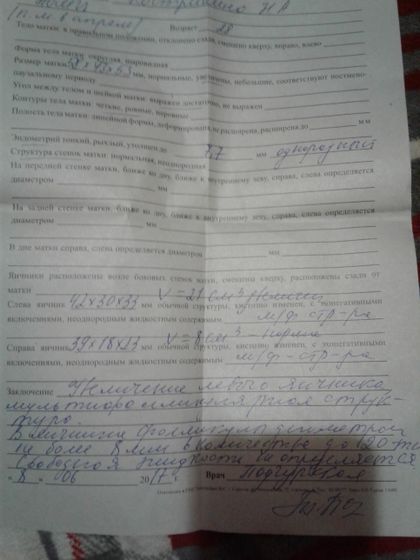 (п. м. в апреле) Возраст 28
Тело матки в правильном положении, отклонено сзади, смещено кверху, вправо, влево
Форма тела матки: округлая, шаровидная
Размер матки мм, нормальные, увеличены, небольшие, соответствуют постмено-
паузальному периоду
Угол между телом и шейкой матки: выражен достаточно, не выражен
Контуры тела матки: четкие, ровные, неровные
Полость тела матки: линейной формы, деформирована, не расширена, расширена до мм
Эндометрий тонкий, рыхлый, утолщен до 7,7 мм однородный
Структура стенок матки: нормальная, неоднородная
На передней стенке матки, ближе ко дну, ближе к внутреннему зеву, справа, слева определяется
диаметром мм
На задней стенке матки, ближе ко дну, ближе к внутреннему зеву, справа, слева определяется
диаметром мм
В дне матки справа, слева определяется диаметром мм
Яичники расположены возле боковых стенок матки, смещены кверху, расположены сзади от
матки V = 21 см³
Слева яичник 42х30х33 мм обычной структуры, кистозно изменен, с эхонегативными
включениями, неоднородным жидкостным содержимым м/ф - стр-ра
V = 8 см³ - норма
Справа яичник 39х18х33 мм обычной структуры, кистозно изменен, с эхонегативными
включениями, неоднородным жидкостным содержимым м/ф - стр-ра
Заключение Увеличение левого яичника
мультифолликулярная струк-
тура.
В яичниках фолликулы диаметром
не более 8 мм в количестве до
Свободная жидкость не определяется
"8" 06 2017 г. Врач